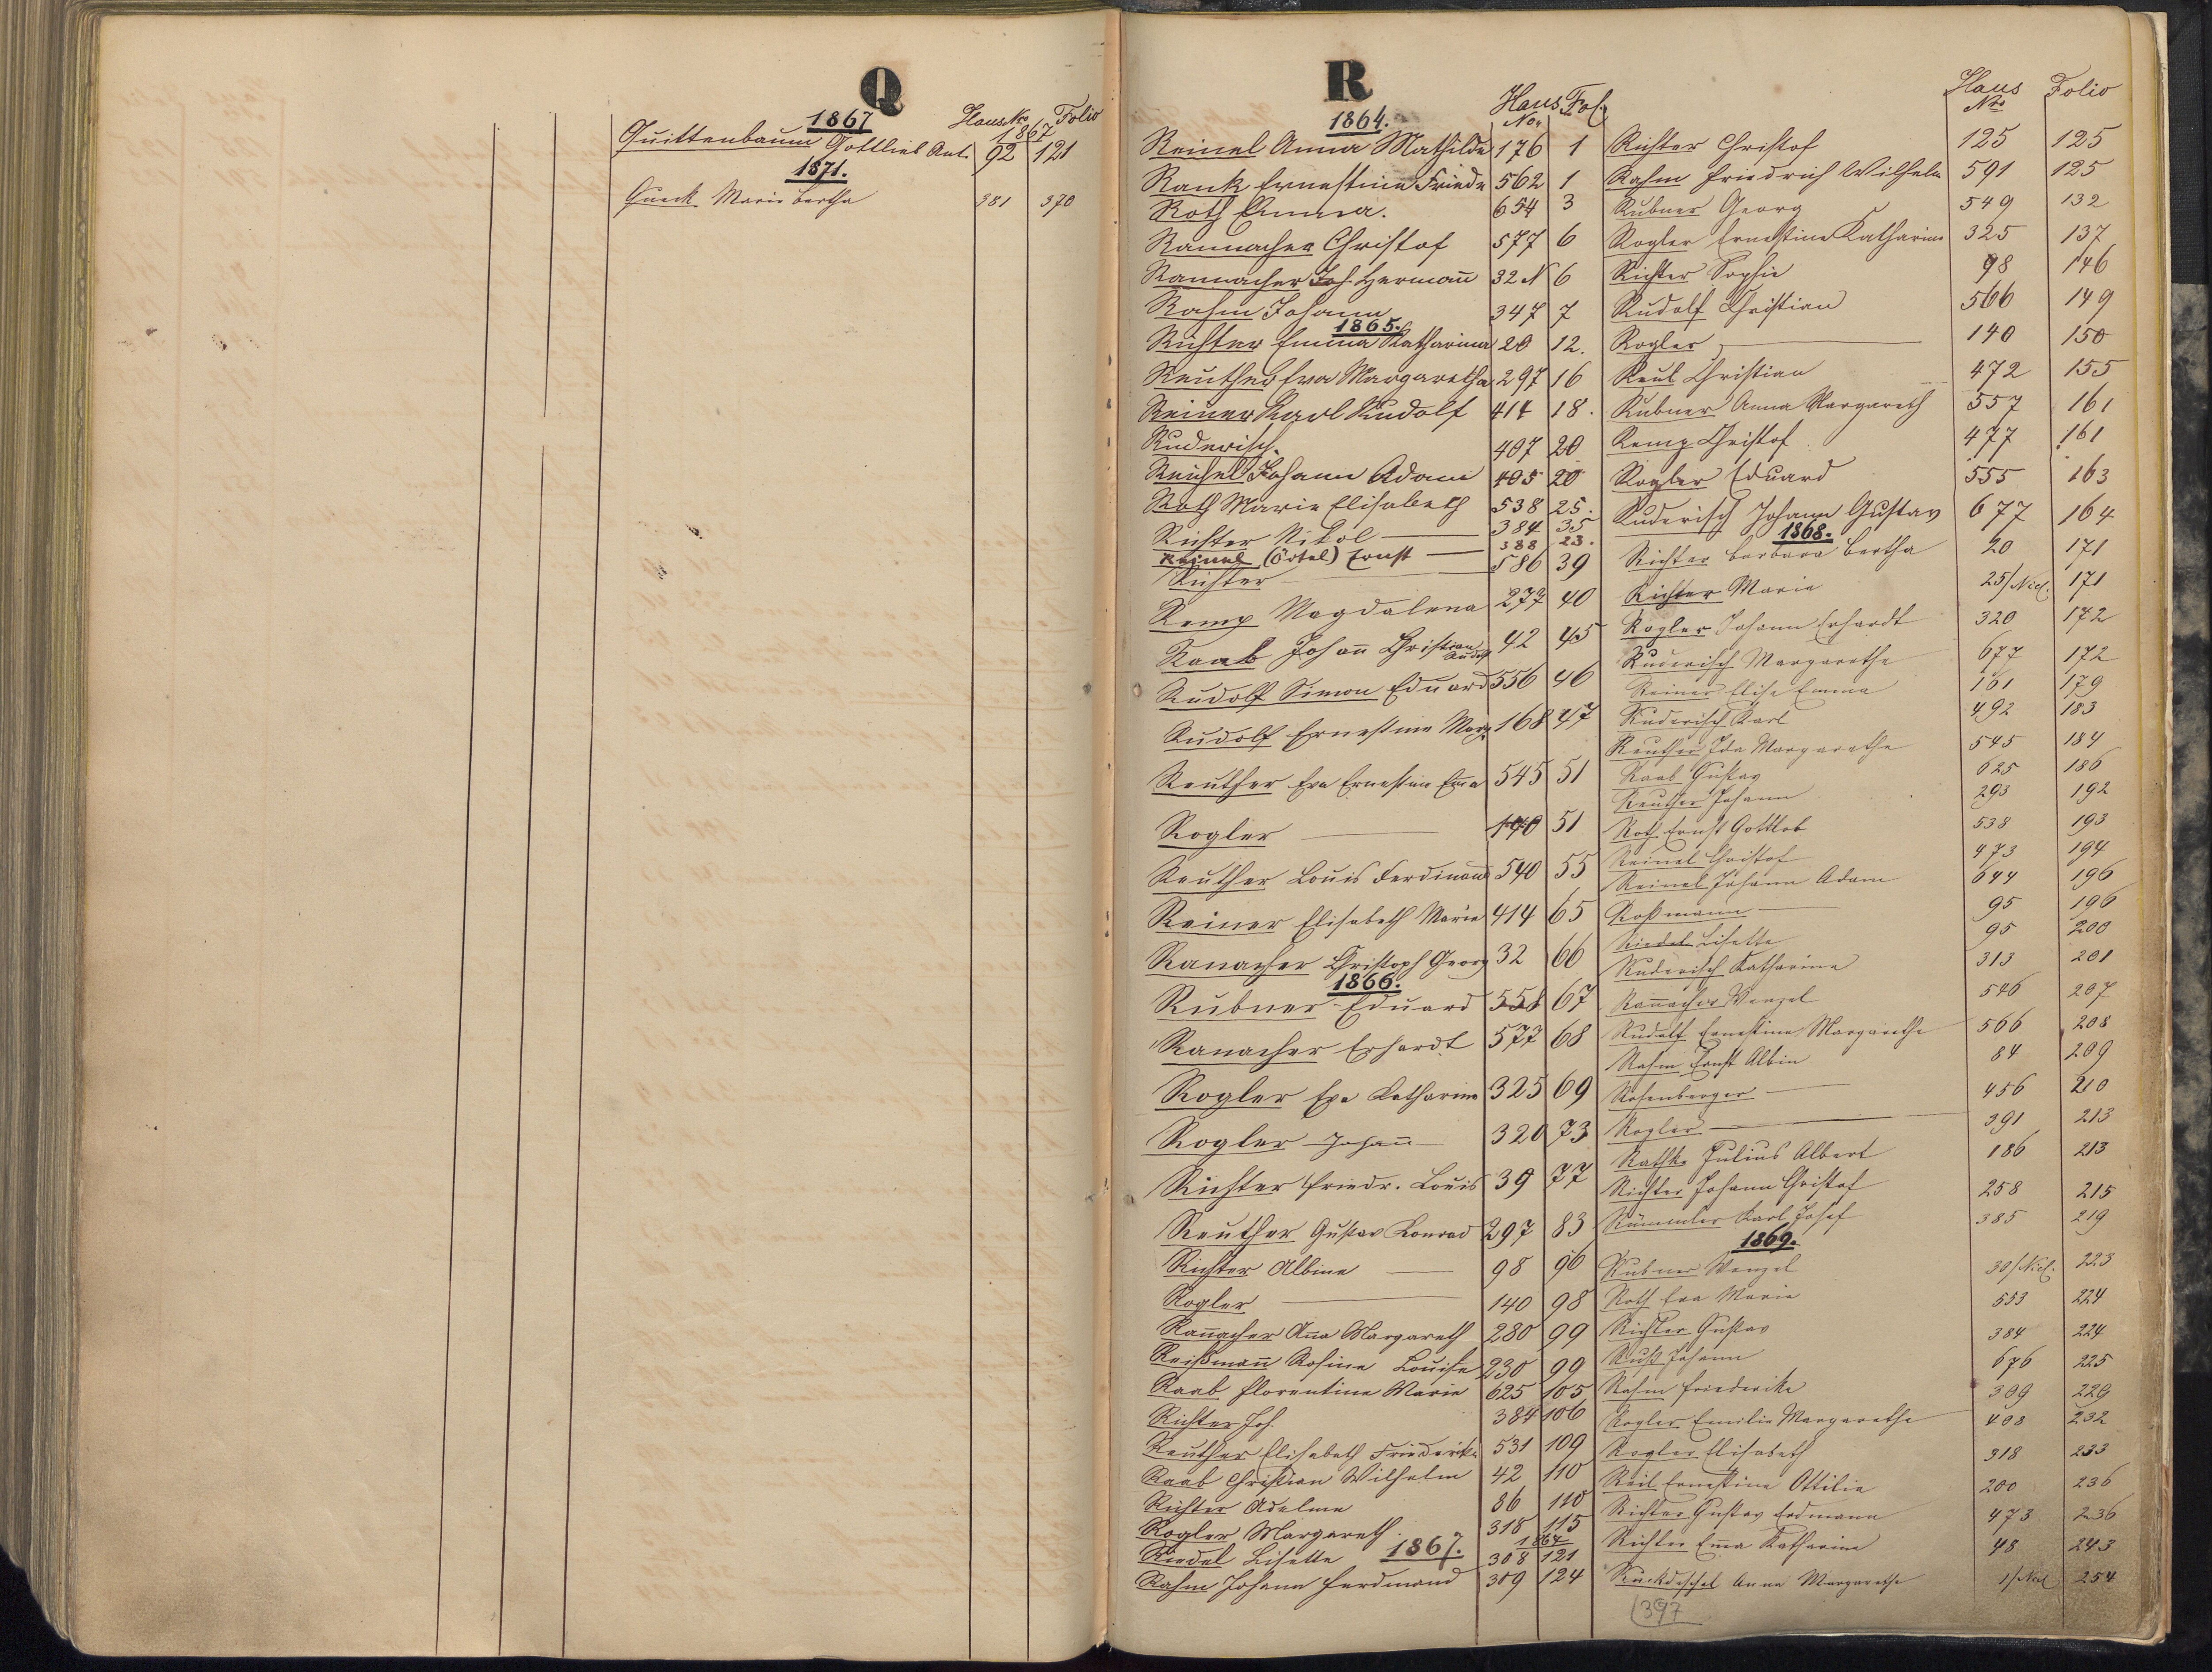 Q
1867 Haus No Folio
1867
Quittenbaum Gottlieb Ant. 92 121
1871.
Queck Marie Bertha 381 370
R
1864. Haus No. Fol.
Reinel Anna Mathilde 176 1
Rank Ernestine Friedr 562 1
Roth Emma. 654 3
Rannacher Christof 577 6
Rannacher Joh. Herman̄ 32 N 6
Rahm Johann 347 7
1865.
Richter Emma Katharina 20 12.
Reuther Eva Margaretha 297 16
Reiner Karl Rudolf 414 18.
Ruderisch. 407 20
Reichel Johann Adam 405 20
Roth Marie Elisabeth 538 25.
Richter Nikol 384 35
Reinel (Örtel) Ernst 388 23.
Richter 586 39
Remp Magdalena 277 40
Raab Johan̄ Christian Rudolf 42 45
Rudolf Simon Eduard 556 46
Rudolf Ernestine Marg. 168 47
Reuther Eva Ernestine Em̄a 545 51
Rogler 140 51
Reuther Louis Ferdinand 540 55
Reiner Elisabeth Marie 414 65
Ranacher Christoph Georg 32 66
1866.
Rubner Eduard 558 67
Ranacher Erhardt 577 68
Rogler Eva Katharina 325 69
Rogler Johan̄ 320 73
Richter Friedr. Louis 39 77
Reuther Gustav Konrad 297 83
Richter Albine 98 96
Rogler 140 98
Ran̄acher An̄a Margareth 280 99
Reißman̄ Rosine Louise 230 99
Raab Florentine Marie 625 105
Richter Joh. 384 106
Reuther Elisabeth Friederike 531 109
Raab Christian Wilhelm 42 110
Richter Adeline 86 110
Rogler Margareth. 318 115
1867. 1867
Riedel Lisette 308 121
Rahm Johann Ferdinand 309 124
Haus No Folio
Richter Christof 125 125
Rahm Friedrich Wilhelm 591 125
Rubner Georg 549 132
Rogler Ernestine Katharine 325 137
Richter Sophie 98 146
Rudolf Christian 566 149
Rogler 140 150
Reul Christian 472 155
Rubner Anna Margareth 557 161
Remp Christof 477 161
Rogler Eduard 555 163
Ruderisch Johann Gustav 677 164
1868.
Richter Barbara Bertha 20 171
Richter Marie 25/Nicl. 171
Rogler Johann Erhardt 320 172
Ruderisch Margarethe 677 172
Reiner Elise Emma 161 179
Ruderisch Karl 492 183
Reuther Ida Margarethe 545 184
Raab Gustav 625 186
Reuther Johann 293 192
Roth Ernst Gottlob 538 193
Reinel Christof 473 194
Reinel Johann Adam 644 196
Roßmann 95 196
Riedel Lisette 95 200
Ruderisch Katharine 313 201
Ran̄acher Wenzel 546 207
Rudolf Ernestine Margarethe 566 208
Rahm Ernst Albin 84 209
Rosenberger 456 210
Rogler 391 213
Rathke Julius Albert 186 213
Richter Johann Christof 258 215
Rümmler Karl Josef 385 219
1869.
Rubner Wenzel 30/Nicl. 223
Roth Eva Marie 553 224
Richter Gustav 384 224
Ruß Johann 676 225
Rahm Friederike 309 229
Rogler Emilie Margarethe 408 232
Rogler Elisabeth 318 233
Reil Ernestine Ottilie 200 236
Richter Gustav Erdmann 473 236
Richter Em̄a Katharine 48 243
Ruckdeschel Anna Margarethe 1/Nicl 254
397